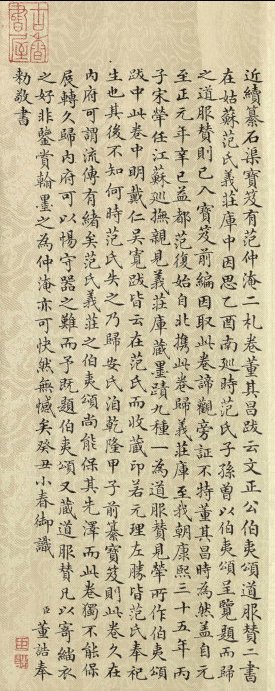 近續纂石渠寶笈有范仲淹二札卷董其昌跋云文正公伯夷頌道服贊二書
在姑蘇范氏義莊庫中因思乙酉南廵時范氏子孫曾以伯夷頌呈覽題而歸
之道服贊則已入寶笈前編因取此卷諦觀旁証不特董其昌時為然蓋自元
至正元年辛已益都范復始自北携此卷歸義莊庫至我朝康熙三十五年丙
子宋犖任江蘇廵撫親見義莊庫藏墨蹟九種一為道服贊見犖所作伯夷頌
跋中此卷中明戴仁吳寬跋皆云在范氏而收藏印若元理左勝皆范氏奉祀
生也其後不知何時范氏失之乃歸安氏洎乾隆甲子前纂寶笈則此卷久在
內府可謂流傳有緒矣范氏義莊之伯夷頌尚能保其先澤而此卷獨不能保
展轉久歸內府可以惕守器之難而予既題伯夷頌又藏道服贊凡以寄緇衣
之好非鑒賞翰墨之為仲淹亦可快然無憾矣癸丑小春御識
臣董誥奉
勅敬書
古香書屋